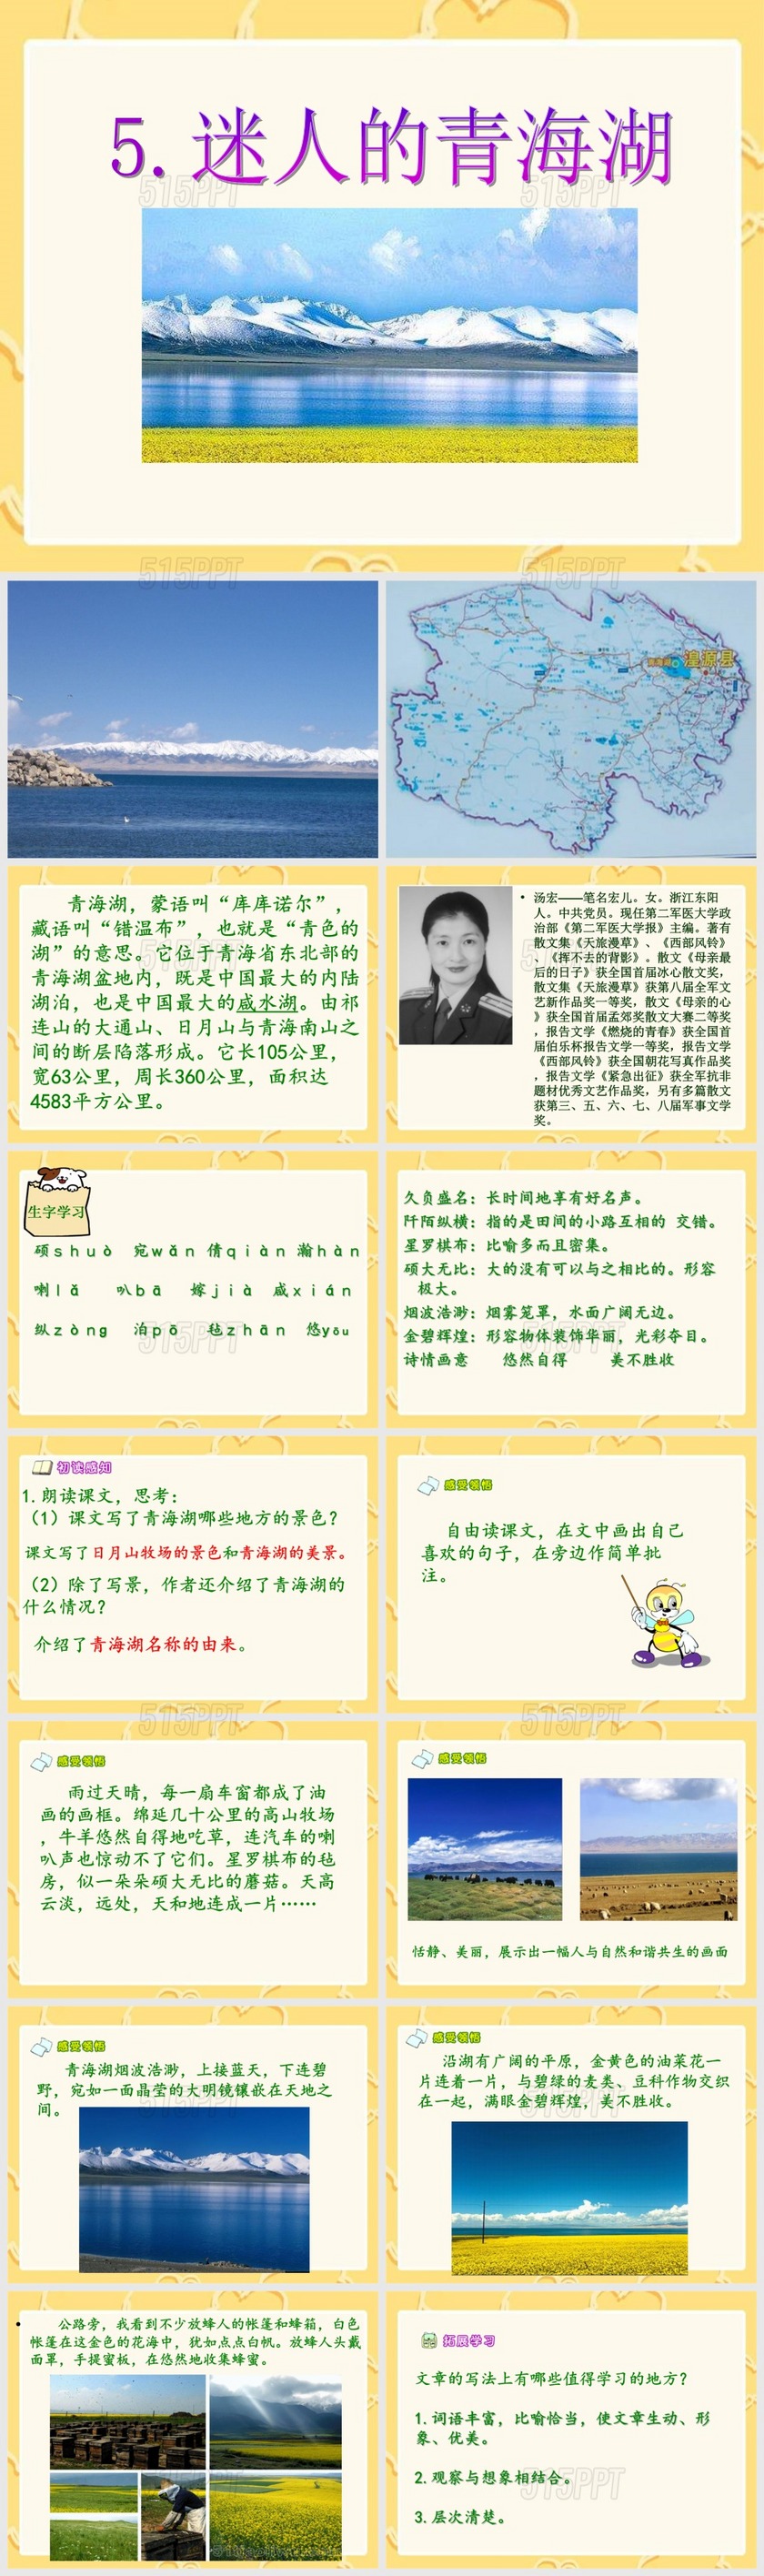 5.迷人的青海湖
515PPT
515PPT
515PPT
515PPT
青海湖
湟源县
青海湖，蒙语叫“库库诺尔”，
藏语叫“错温布”，也就是“青色的
湖”的意思。它位于青海省东北部的
青海湖盆地内，既是中国最大的内陆
湖泊，也是中国最大的咸水湖。由祁
连山的大通山、日月山与青海南山之
间的断层陷落形成。它长105公里，
宽63公里，周长360公里，面积达
4583平方公里。
• 汤宏——笔名宏儿。女。浙江东阳
人。中共党员。现任第二军医大学政
治部《第二军医大学报》主编。著有
散文集《天旅漫草》、《西部风铃》
、《挥不去的背影》。散文《母亲最
后的日子》获全国首届冰心散文奖，
散文集《天旅漫草》获第八届全军文
艺新作品奖一等奖，散文《母亲的心
》获全国首届孟郊奖散文大赛二等奖
，报告文学《燃烧的青春》获全国首
届伯乐杯报告文学一等奖，报告文学
《西部风铃》获全国朝花写真作品奖
，报告文学《紧急出征》获全军抗非
题材优秀文艺作品奖，另有多篇散文
获第三、五、六、七、八届军事文学
奖。
生字学习
硕shuò 宛wǎn 倩qiàn 瀚hàn
喇lǎ 叭bā 嫁jià 咸xián
纵zòng 泊pō 毡zhān 悠yōu
515PPT
久负盛名：长时间地享有好名声。
阡陌纵横：指的是田间的小路互相的 交错。
星罗棋布：比喻多而且密集。
硕大无比：大的没有可以与之相比的。形容
极大。
烟波浩渺：烟雾笼罩，水面广阔无边。
金碧辉煌：形容物体装饰华丽，光彩夺目。
诗情画意 悠然自得 美不胜收
515PPT
初读感知
1.朗读课文，思考：
（1）课文写了青海湖哪些地方的景色？
课文写了日月山牧场的景色和青海湖的美景。
（2）除了写景，作者还介绍了青海湖的
什么情况？
介绍了青海湖名称的由来。
感受领悟
自由读课文，在文中画出自己
喜欢的句子，在旁边作简单批
注。
515PPT
515PPT
感受领悟
雨过天晴，每一扇车窗都成了油
画的画框。绵延几十公里的高山牧场
，牛羊悠然自得地吃草，连汽车的喇
叭声也惊动不了它们。星罗棋布的毡
房，似一朵朵硕大无比的蘑菇。天高
云淡，远处，天和地连成一片……
感受领悟
恬静、美丽，展示出一幅人与自然和谐共生的画面
感受领悟
青海湖烟波浩渺，上接蓝天，下连碧
野，宛如一面晶莹的大明镜镶嵌在天地之
间。
515PPT
感受领悟
沿湖有广阔的平原，金黄色的油菜花一
片连着一片，与碧绿的麦类、豆科作物交织
在一起，满眼金碧辉煌，美不胜收。
515PPT
• 公路旁，我看到不少放蜂人的帐篷和蜂箱，白色
帐篷在这金色的花海中，犹如点点白帆。放蜂人头戴
面罩，手提蜜板，在悠然地收集蜂蜜。
拓展学习
文章的写法上有哪些值得学习的地方？
1.词语丰富，比喻恰当，使文章生动、形
象、优美。
2.观察与想象相结合。
3.层次清楚。
515PPT